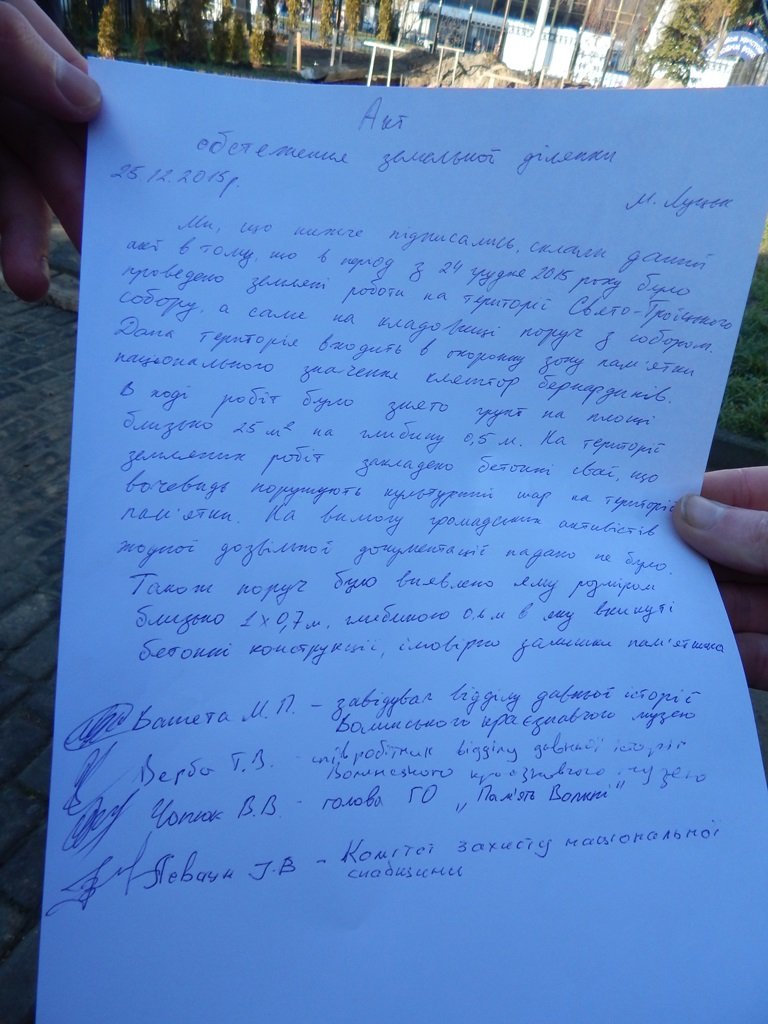 Акт
обстеження земельної ділянки
25.12.2015р.
м. Луцьк
Ми, що нижче підписались, склали даний
акт в тому, що в період з 24 грудня 2015 року було
проведено земляні роботи на території Свято-Троїцького
собору, а саме на кладовищі поруч з собором.
Дана територія входить в охоронну зону пам'ятки
національного значення кляштор бернардинів.
В ході робіт було знято грунт на площі
близько 25 м² на глибину 0,5 м. На території
земляних робіт закладено бетонні сваї, що
вочевидь порушують культурний шар на території
пам'ятки. На вимогу громадських активістів
жодної дозвільної документації надано не було.
Також поруч було виявлено яму розміром
близько 1 х 0,7 м, глибиною 0,6 м в яку вкинуті
бетонні конструкції, імовірно залишки пам'ятника
Башета М. П. – завідувач відділу давньої історії
Волинського краєзнавчого музею
Верба Т. В. - співробітник відділу давньої історії
Волинського краєзнавчого музею
В. В. - голова ГО „Пам'ять Волині"
І. В – Комітет захисту національної
спадщини